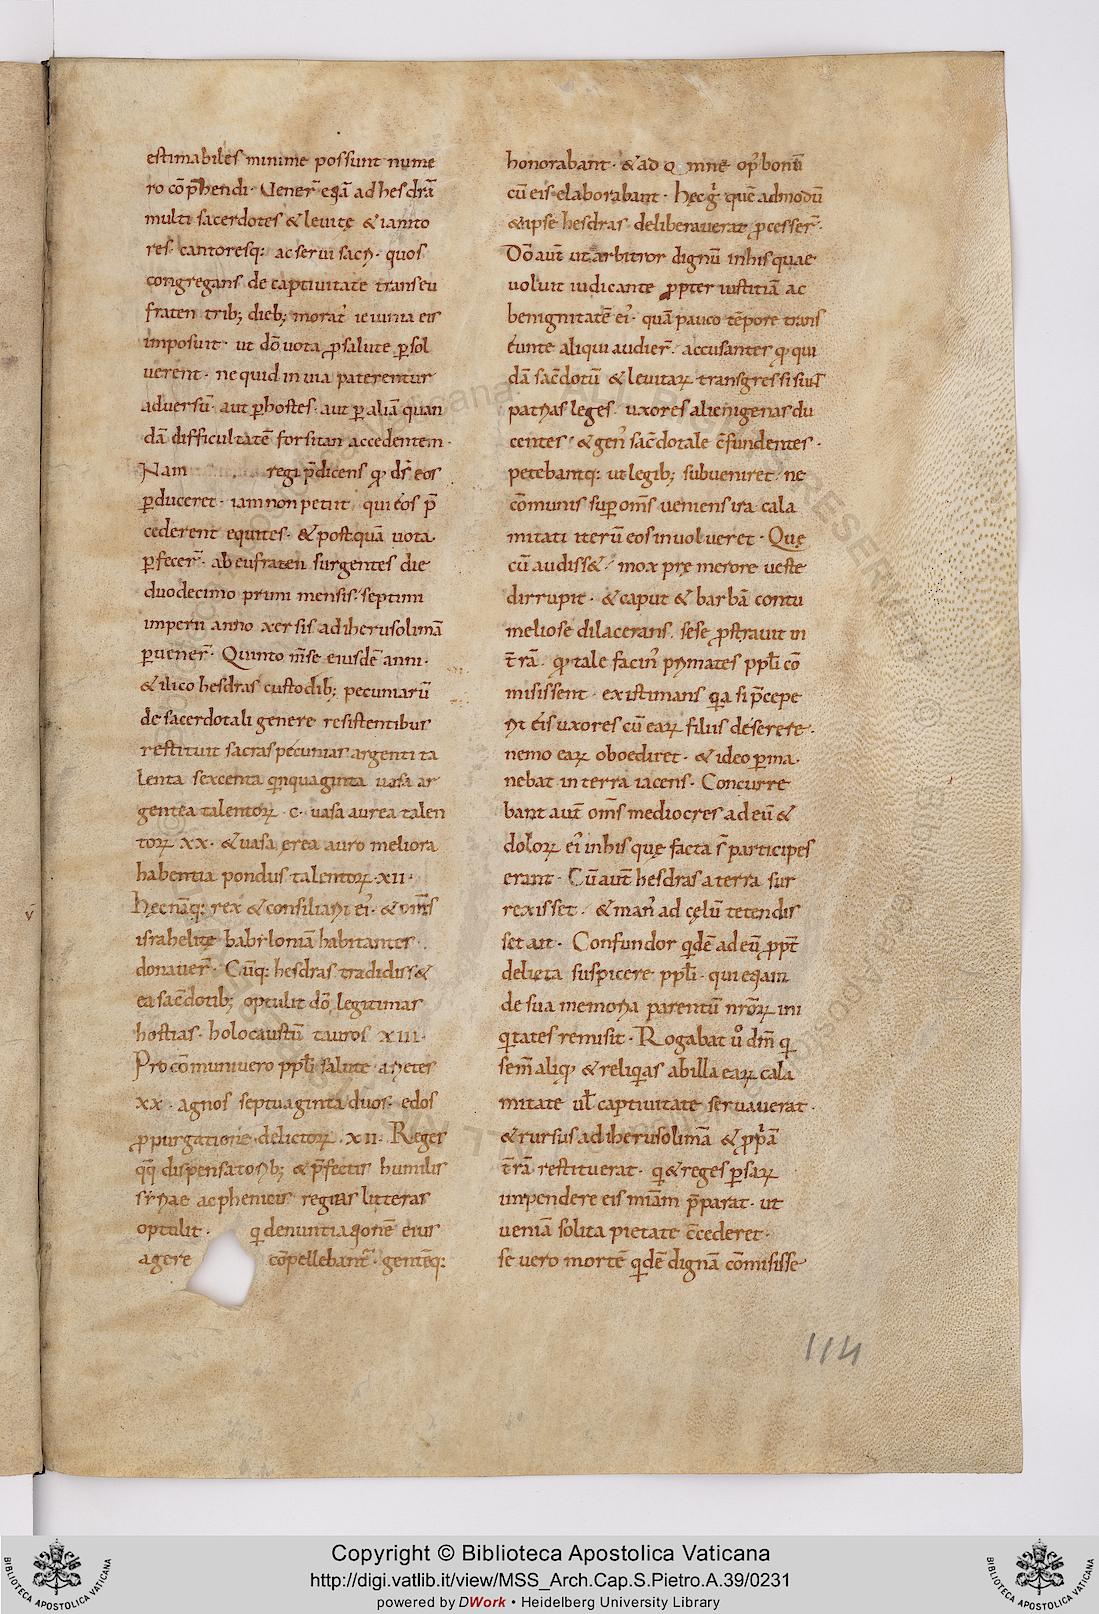 estimabiles minime possunt nume
ro cō p̄hendi · Uener̄ eqā ad hesdrā
multi sacerdotes & leuitę & ianito
res · cantoresq; ac serui sacꝝ · quos
congregans de captiuitate trans eu
fraten trib; dieb; morat᷒ ieiunia eis
imposuit · ut dō uota ꝓ salute ꝑsol
uerent · ne quid in uia paterentur
aduersū · aut ꝑ hostes · aut ꝑ aliā quan
dā difficultatē forsitan accedentem ·
Nam regi p̄dicens qđ dš eos
ꝑduceret · iam non petiit qui eos p̄
cederent equites · & postquā uota
ꝑfecer̄ · ab eufraten surgentes die
duodecimo primi mensis · septimi
imperii anno xersis ad iherusolimā
ꝑuener̄ · Quinto m̄se eiusdē anni ·
& ilico hesdras custodib; pecuniarū
de sacerdotali genere resistentibus
restituit sacras pecunias argenti ta
lenta sexcenta qinquaginta uasa ar
gentea talentoꝝ · c · uasa aurea talen
toꝝ xx · & uasa erea auro meliora
habentia pondus talentoꝝ · xii ·
hęc nāq; rex & consiliarii ei᷒ · & om̄s
israhelitę babiloniā habitantes
donauer̄ · Cūq; hesdras tradidiss&
ea sac̄dotib; optulit dō legitimas
hostias · holocaustū tauros xiii ·
Pro cōmuni uero ppłi salute arietes
xx · agnos septuaginta duos · edos
ꝓ purgatione delictoꝝ · xii · Reges
qq dispensatorib; & p̄fectis humilis
syriae ac phenicis regias litteras
optulit · qi denuntiationē eius
agere cōpellebant᷒ · gentēq;
honorabant · & ad omne op᷒ bonū
cū eis elaborabant · hęc g̊ quē admodū
& ipse hesdras deliberauerat ꝓcesser̄ ·
Dō aut̄ ut arbitror dignū in his quae
uoluit iudicante ꝓpter iustitiā ac
benignitatē ei᷒ · quā pauco tēpore trans
eunte aliqui audier̄ · accusantes qđ qui
dā sac̄dotū & leuitaꝝ transgressi sint
patrias leges · uxores alienigenas du
centes · & gen᷒ sac̄dotale c̄fundentes ·
petebantq; ut legib; subueniret · ne
cōmunis suꝑ om̄s ueniens ira cala
mitati iterū eos inuolueret · Quę
cū audiss& · mox pre merore ueste
dirrupit · & caput & barbā contu
meliose dilacerans · sese ꝓstrauit in
t̄rā · qđ tale facin᷒ primates ppłi cō
misissent · existimans qia si p̄cepe
rit eis uxores cū eaꝝ filiis deserere ·
nemo eaꝝ oboediret · & ideo ꝑma
nebat in terra iacens · Concurre
bant aut̄ om̄s mediocres ad eū &
doloꝝ ei᷒ in his quę facta s̄ participes
erant · Cū aut̄ hesdras a terra sur
rexisset · & man᷒ ad cęlū tetendis
set ait · Confundor qidē ad eū ꝓpt̄
delicta suspicere ppłi · qui eqam
de sua memoria parentū nr̄oꝝ ini
qitates remisit · Rogabat ů dm̄ qi
sem̄ aliqđ & reliqias ab illa eaꝝ cala
mitate uł captiuitate seruauerat ·
& rursus ad iherusolimā & ppiā
t̄rā restituerat · qi & reges ꝑsaꝝ
impendere eis miam p̄parat · ut
ueniā solita pietate c̄cederet ·
se uero mortē qidē dignā cōmisisse
114
Copyright © Biblioteca Apostolica Vaticana
http://digi.vatlib.it/view/MSS_Arch.Cap.S.Pietro.A.39/0231
powered by DWork • Heidelberg University Library